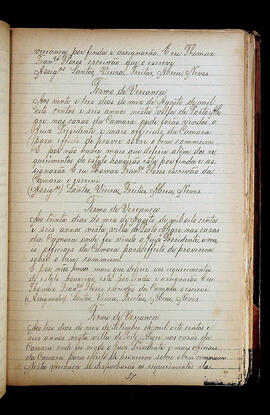 vereança por finda e assignarão. Eu Thomaz
Fran.co Flores escrivão que o escrevy.
Assig.dos Santos, Vieira, Freitas, Abreu, Neves
Termo de Vereança
Aos vinte e tres dias do mez de Agosto de mil
oito centos e seis annos nesta villa de Porto Ale-
gre nas casas da Camara onde forão vindos o
Juiz Presidente e mais officiaes da Camara
para effeito de prover sobre o bem commum.
E por não haver mais que deferir alem dos re-
querimentos de estylo houverão esta por finda e as-
signarão. Eu Thomaz Fran.co Flores escrivão da
Camara o escrevy.
(Assig.dos) Santos, Vieira, Freitas, Abreu, Neves
Termo de Vereança
Aos trinta dias do mez de Agosto de mil oito centos
e seis annos nesta villa de Porto Alegre nas casas
da Camara onde foi vindo o Juiz Presidente, e ma-
is officiaes da Camara para effeito de proverem
sobre o bem commum
E por não haver mais que deferir aos requerimentos
de estylo houverão esta por finda e assignarão. Eu
Thomaz Fran.co Flores escrivão da Camara o escrevy
(Assignados) Santos, Vieira, Freitas, Abreu, Neves
Termo de Vereança
Aos seis dias do mez de Setembro de mil oito centos e
seis annos nesta villa de Porto Alegre nas casas da
Camara onde foi vindo o Juiz Presidente e mais officiaes
da Camara para effeito de proverem sobre o bem commum
Nesta vereança se despacharão os requerimentos das